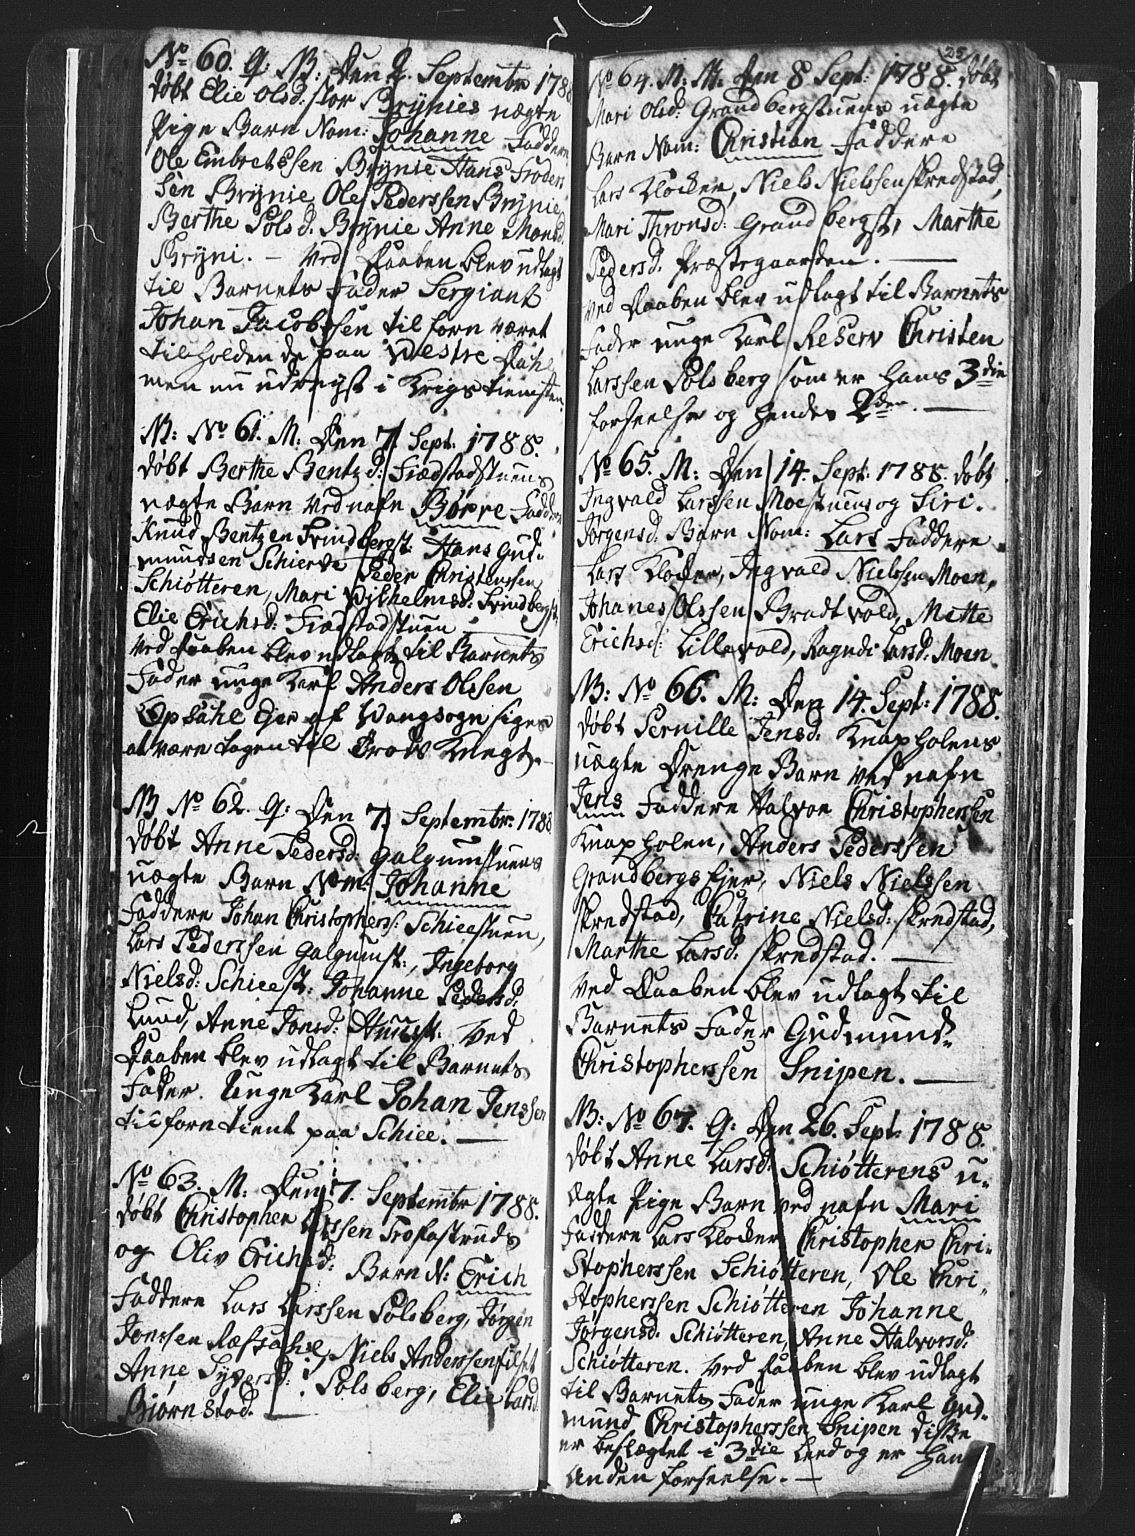 No 60. Q: NB: Den 2. Septembr 1788
døbt Elie Olsd: stor Brynies uægte
Pige Barn Nom: Johanne Faddere
Ole Embretssen Brynie Hans Froder
sen Brynie, Ole Pederssen Brynie,
Berthe Polsd. Brynie Anne Monsd.
Bryni. — Ved Daaben blev udlagt
til Barnets Fader Sergiant
Johan Jacobssen til forn været
tilholdende paa Westre Dahl,
men nu udreyst i Krigs tienesten.
NB: No 61. M: Den 7 Sept: 1788.
døbt Berthe Bentzd: Fiædstadstuens
uægte Barn ved nafn Børre Faddere
Knud Bentzen Svindbergst: Hans Gud-
mundsen Schierve Peder Christenssen
Schiøtteren, Mari Wilhelmsd: Svindbergst:
Elie Erichsd: Fiædstadstuen
Ved Daaben blev udlagt til Barnets
Fader unge Karl Anders Olssen
Opsahl Ejer af Wangsogn siges
at være tagen til Trods Knegt. —
NB No 62. Q: Den 7 Septembr: 1788
døbt Anne Pedersd: Galgumstuens
uægte Barn Nom: Johanne
Faddere Johan Christophers: Schieestuen,
Lars Pederssen Galgumst:, Ingeborg
Nielsd: Schieest: Johanne Pedersd:
Lund, Anne Jonsd: Ved
Daaben blev udlagt til Barnets
Fader. Unge Karl Johan Jenssen
tilforn tient paa Schiee. —
No 63. M: Den 7. Septembr 1788.
døbt Christopher Larssen Trofastruds
og Oliv Erichsd: Barn N: Erich
Faddere Lars Larssen Solsberg, Jørgen
Jonssen Næstahl, Niels Anderssen
Anne Syversd: Solsberg, Elie Larsd:
Biørnstad. —
25
No 64. M: M: Den 8 Sept: 1788. døbt
Mari Olsd: Grandbergstuens uægte
Barn Nom: Christian Faddere
Lars Klocker, Niels Nielssen Skredstad,
Mari Thronsd: Grandbergst, Marthe
Pedersd. Præstegaarden. —
Ved Daaben blev udlagt til Barnets
Fader unge Karl Reserv Christen
Larssen Solsberg som er hans 3die
forseelse og hendes 2den. —
No 65. M: Den 14. Sept: 1788. døbt
Ingvald Larssen Moestuens og Siri
Jørgensd: Barn Nom: Lars Faddere
Lars Klocker, Ingvald Nielssen Moen,
Johanes Olssen Bradtvold, Mette
Erichsd: Lillevold, Ragndi Larsd: Moen.
NB: No 66. M: Den 14. Sept: 1788.
døbt Pernille Jensd: Knapholens
uægte Drenge Barn ved nafn
Jens Faddere Halvor Christopherssen
Knapholen, Anders Pederssen
Grandbergs Ejer, Niels Nielssen
Skredstad, Catrine Nielsd: Skredstad,
Marthe Larsd: Skredstad. —
Ved Daaben blev udlagt til
Barnets Fader Gudmund
Christopherssen Snipen. —
NB: No 67. Q: Den 26. Sept: 1788.
døbt Anne Larsd: Schiøtterens u-
ægte Pige Barn ved nafn Mari
Faddere Lars Klocker Christopher Chri-
stopherssen Schiøtteren, Ole Chri-
stopherssen Schiøtteren Johanne
Jørgensd. Schiøtteren, Anne Halvorsd:
Schiøtteren. Ved Daaben blev udlagt
til Barnets Fader unge Karl Gud-
mund Christopherssen Snipen disse
er beslægtet i 3die Leed og er hans
anden forseelse. —